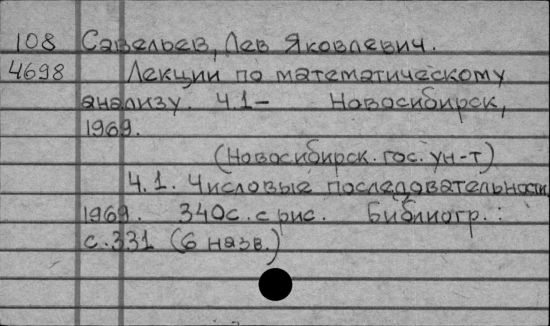 108 Савельев, Лев Яковлевич.
4698 Лекции по математическому
анализу. Ч.1- Новосибирск,
1969.
(Новосибирск. гос. ун-т)
Ч.1. Числовые последовательности,
1969. 340с. с рис. Библиогр.:
с.331 (6 назв.)